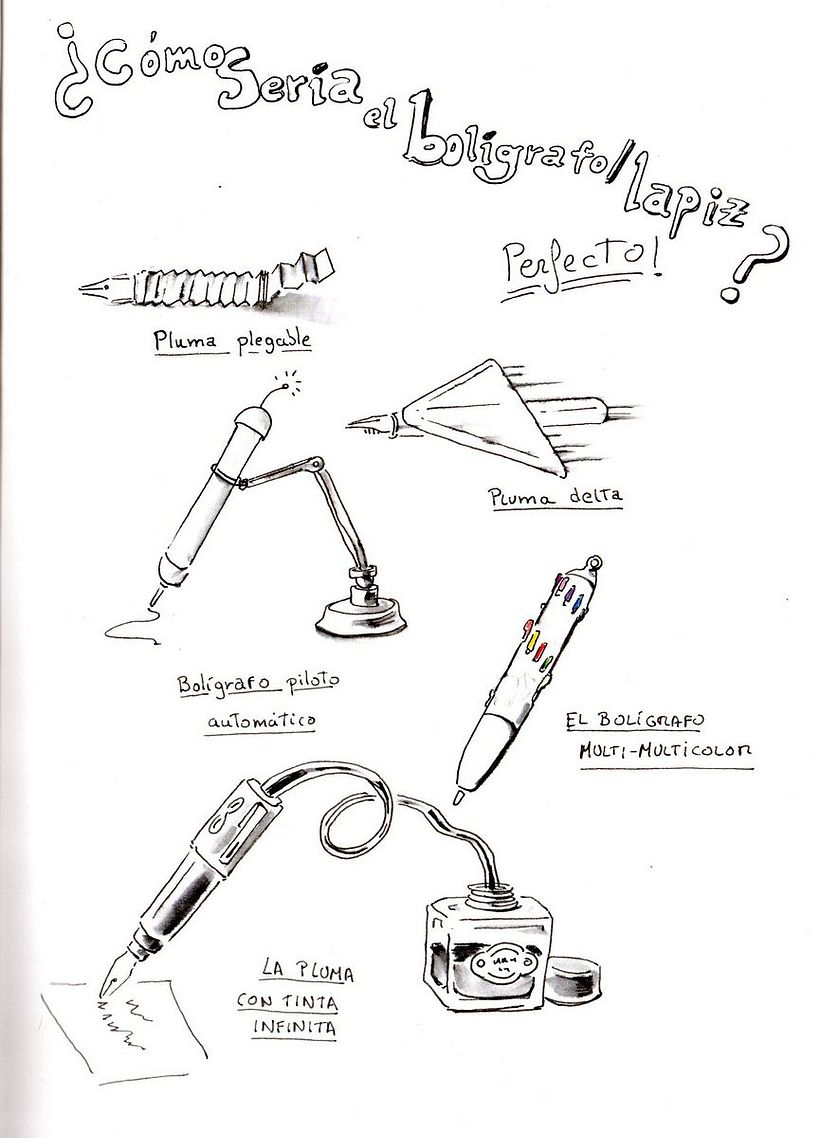 ¿Cómo sería el bolígrafo/lapiz
Perfecto!
?
Pluma plegable
Pluma delta
Bolígrafo piloto
automático
EL BOLÍGRAFO
MULTI-MULTICOLOR
LA PLUMA
CON TINTA
INFINITA